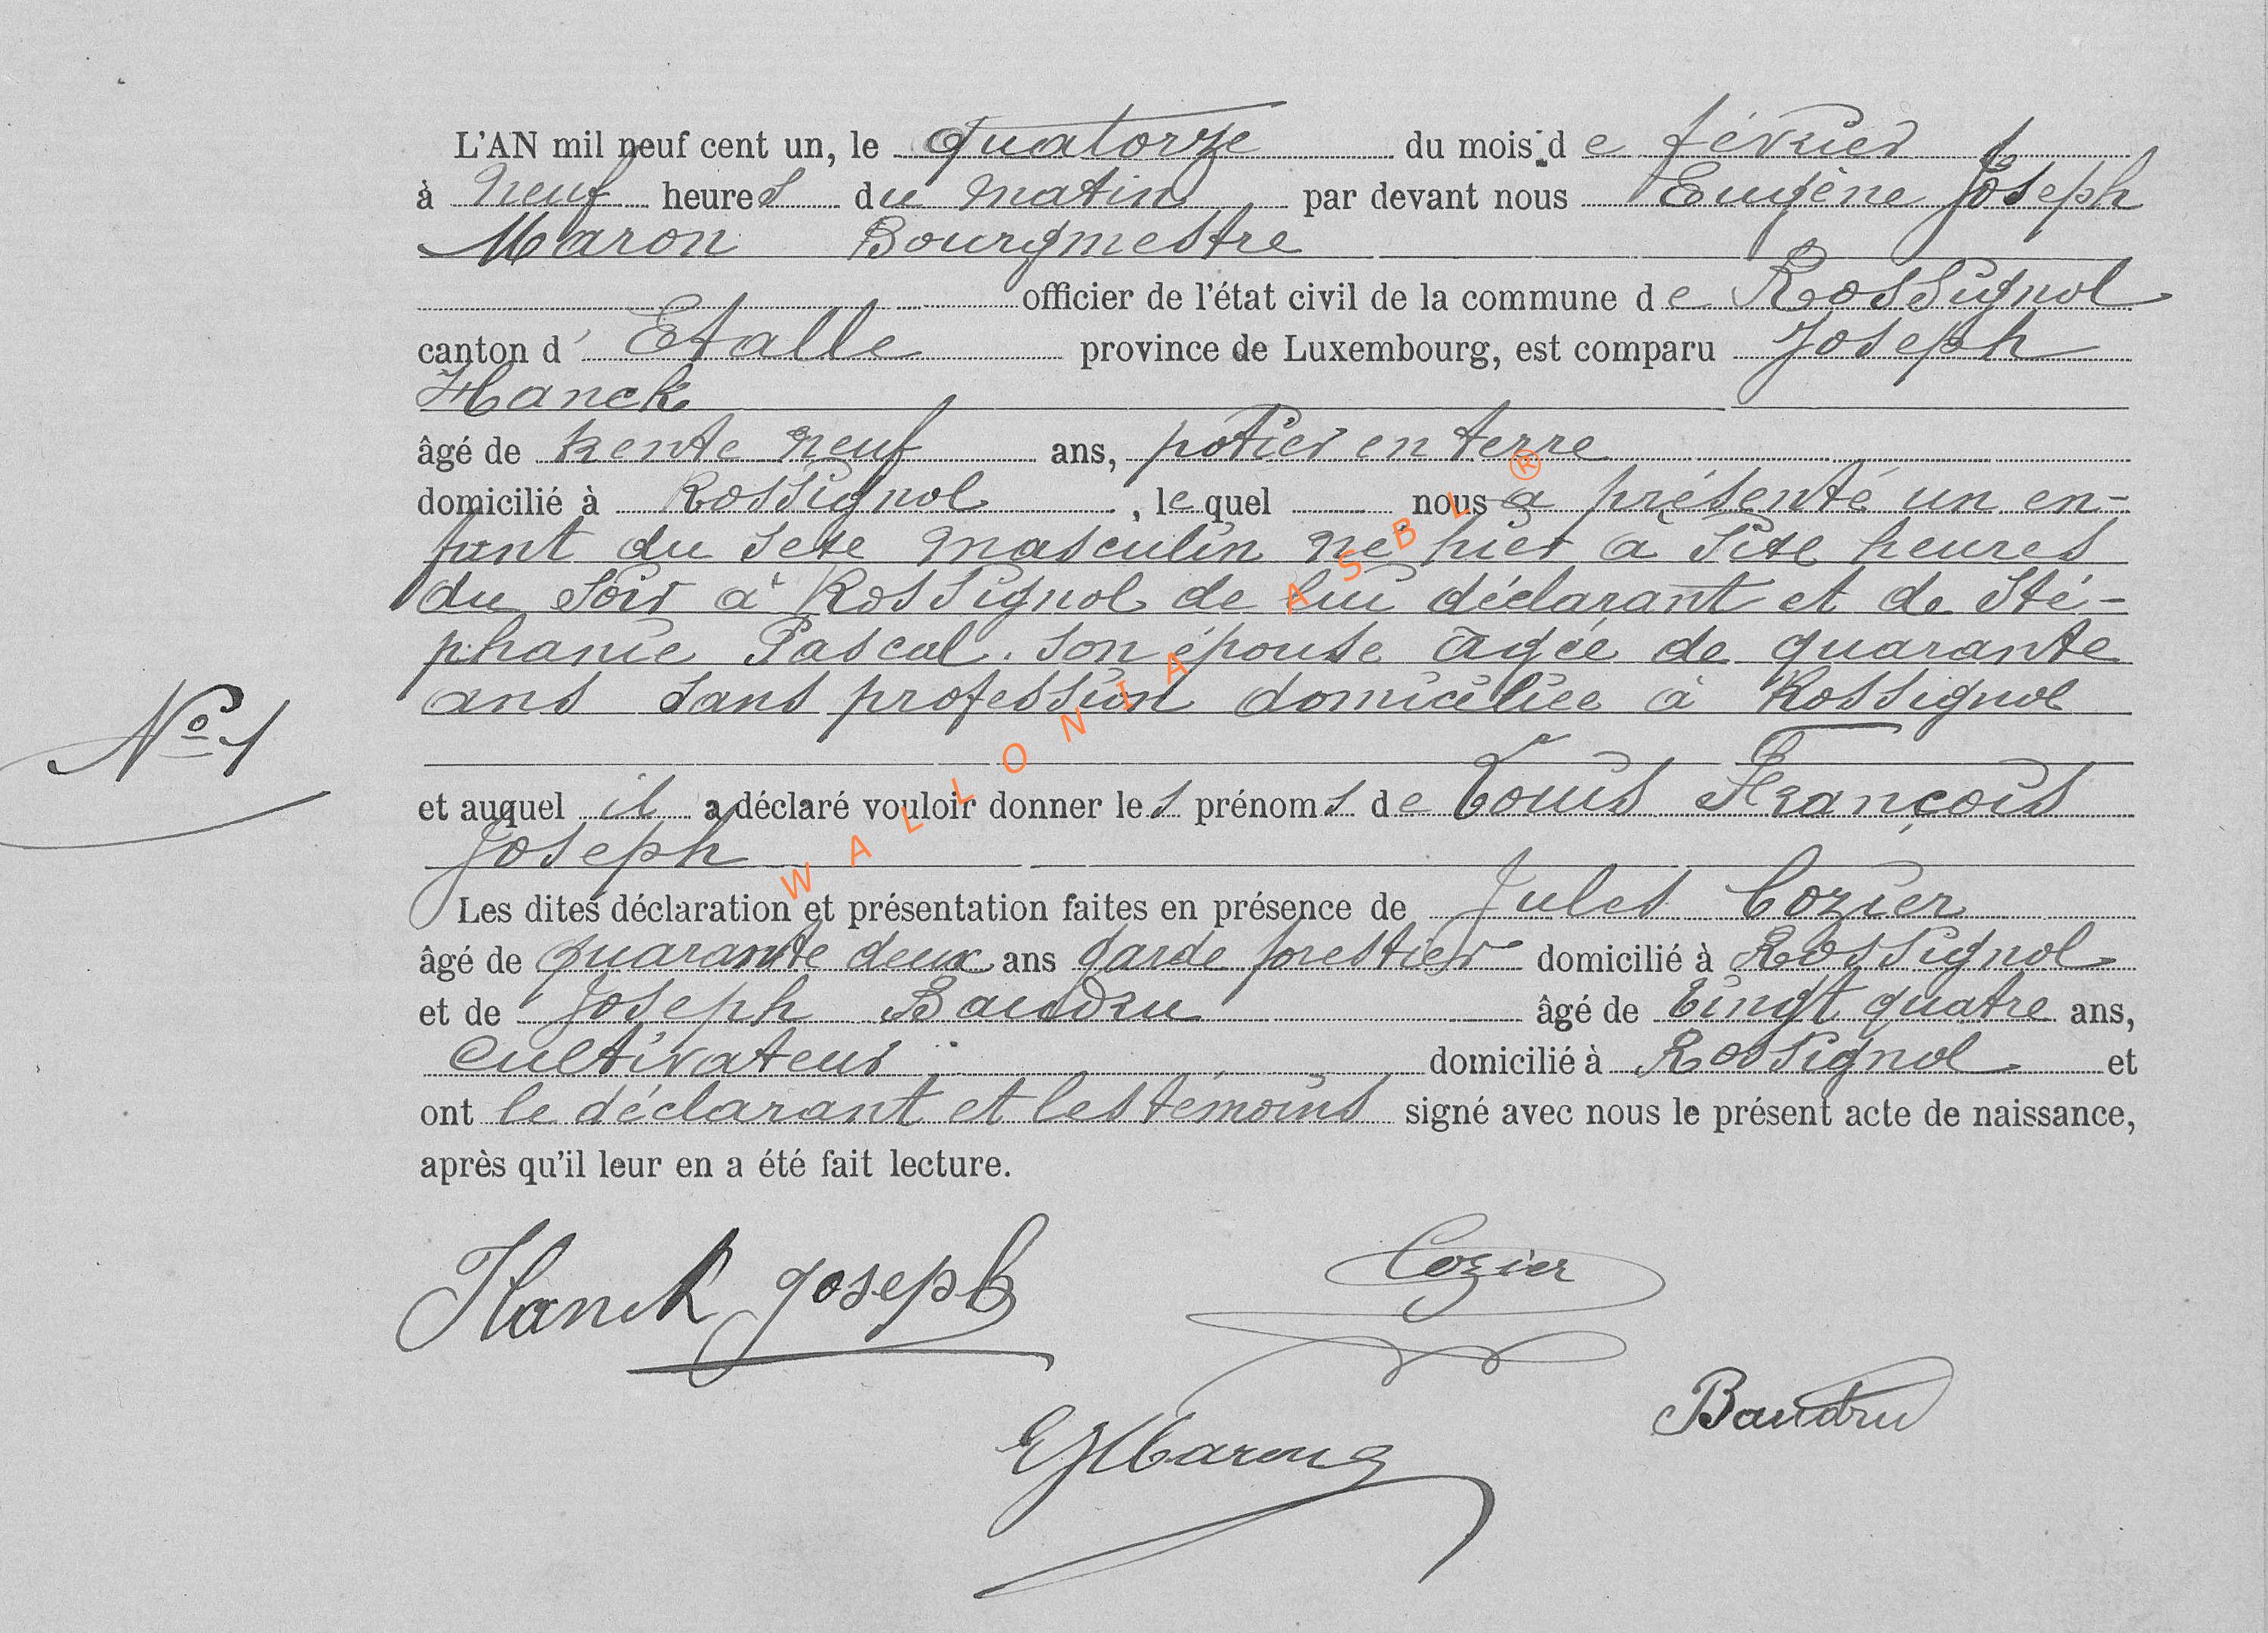 L'AN mil neuf cent un, le quatorze du mois de février
à neuf heures du matin par devant nous Eugène Joseph
Maron Bourgmestre
officier de l'état civil de la commune de Rossignol
canton d'Etalle province de Luxembourg, est comparu Joseph
Hanck
âgé de trente neuf ans, potier en terre
domicilié à Rossignol, lequel nous a présenté un en-
fant du sexe masculin né hier à six heures
du soir à Rossignol de lui déclarant et de Sté-
phanie Pascal son épouse agée de quarante
ans sans profession domiciliée à Rossignol
N° 1
et auquel il a déclaré vouloir donner les prénoms de Louis François
Joseph
Les dites déclaration et présentation faites en présence de Jules Cozier
âgé de quarante deux ans garde forestier domicilié à Rossignol
et de Joseph Baudru âgé de vingt quatre ans,
cultivateur domicilié à Rossignol et
ont le déclarant et les témoins signé avec nous le présent acte de naissance,
après qu'il leur en a été fait lecture.
Hanck Joseph
Cozier
Baudru
EJMaron
WALLONIA ASBL ®